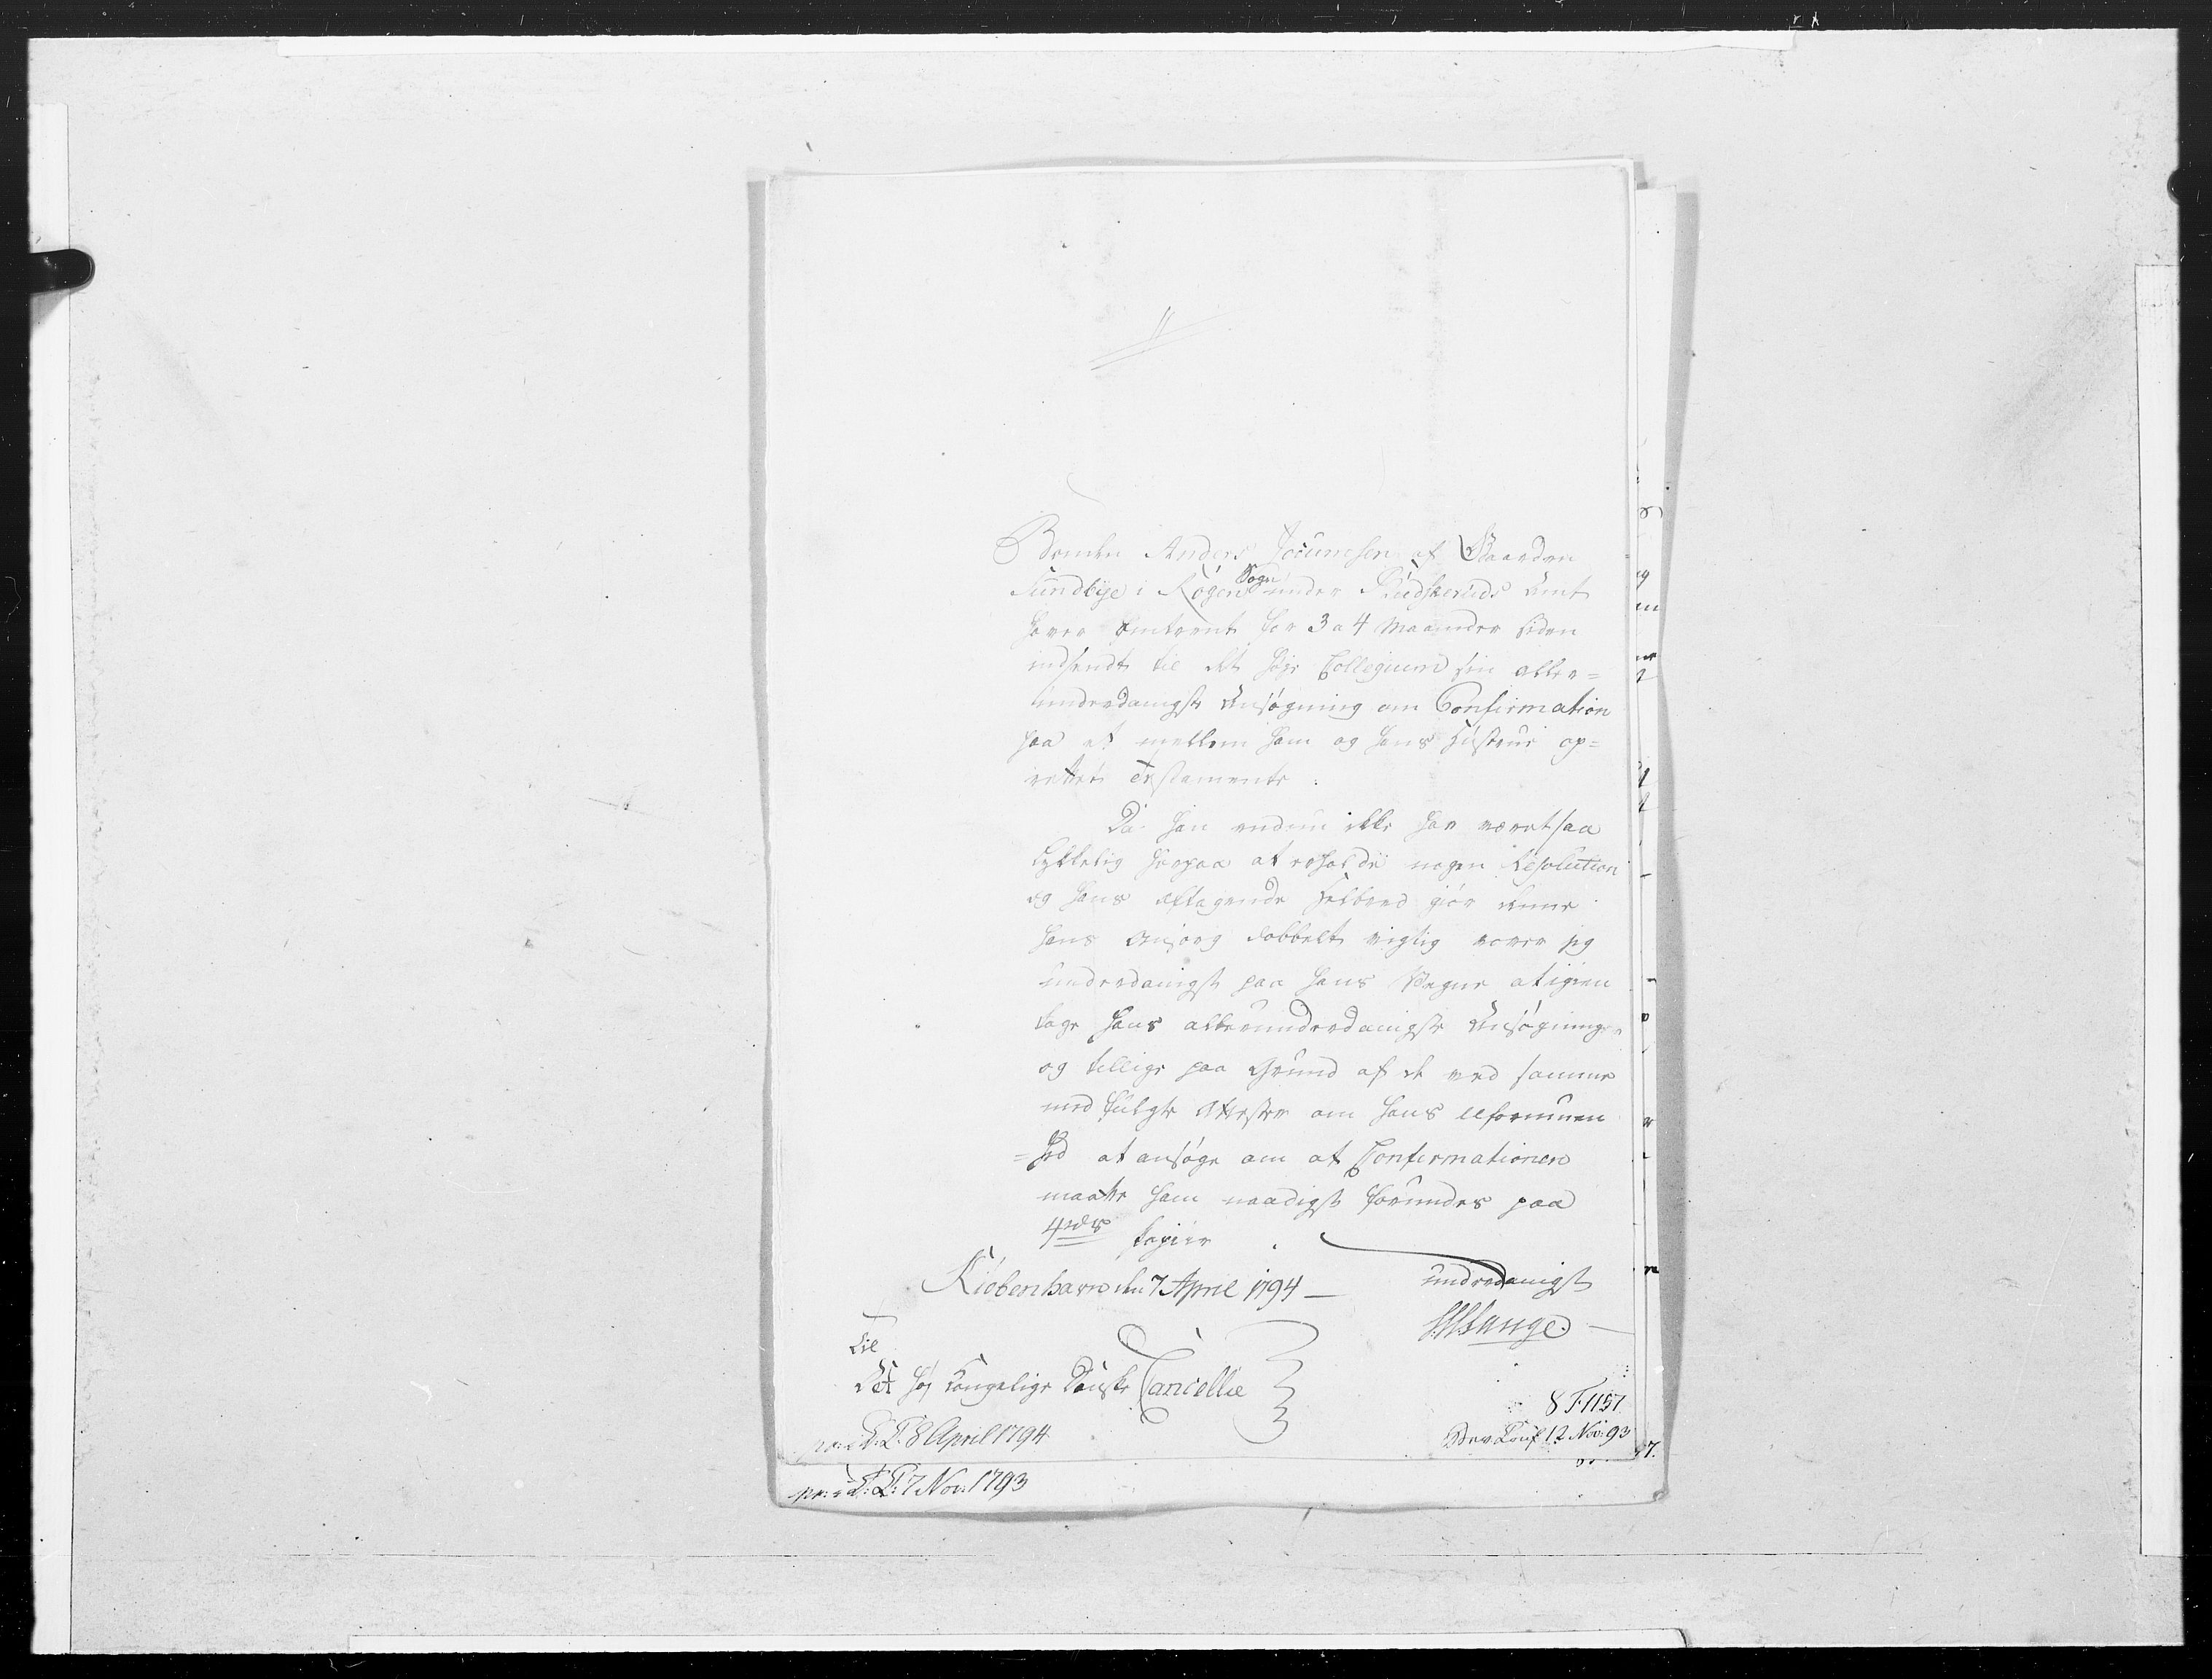 Bonden Anders Jocumsen af Gaarden
Sundbye i Røgen Sogn under Budskeruds Amt
haver omtrent for 3 a 4 Maaneder siden
indsendt til det høje Collegium sin aller=
underdanigste Ansøgning om Confirmation
paa et mellem ham og hans Hustrue op=
rettet Testamente.
Da han endnu ikke har været saa
lykkelig herpaa at erholde nogen Resolution
og hans aftagende Helbred giør denne
hans Ansøg dobbelt vigtig vover jeg
underdanigst paa hans Vegne at igien
tage hans allerunderdanigste Ansøgning
og tillige paa Grund af de ved samme
med fulgte Attester om hans uformuen
=hed at ansøge om at Confirmationen
maatte ham naadigst forundes paa
4de Papiir
Kiøbenhavn den 7 April 1794 —
underdanigst
Lange.
Til
Det høj Kongelige Danske Cancellie
pr: i D: C: 8 April 1794
8 T. 1157
12 Nov: 93
pr: i D: C: 7 Nov: 1793